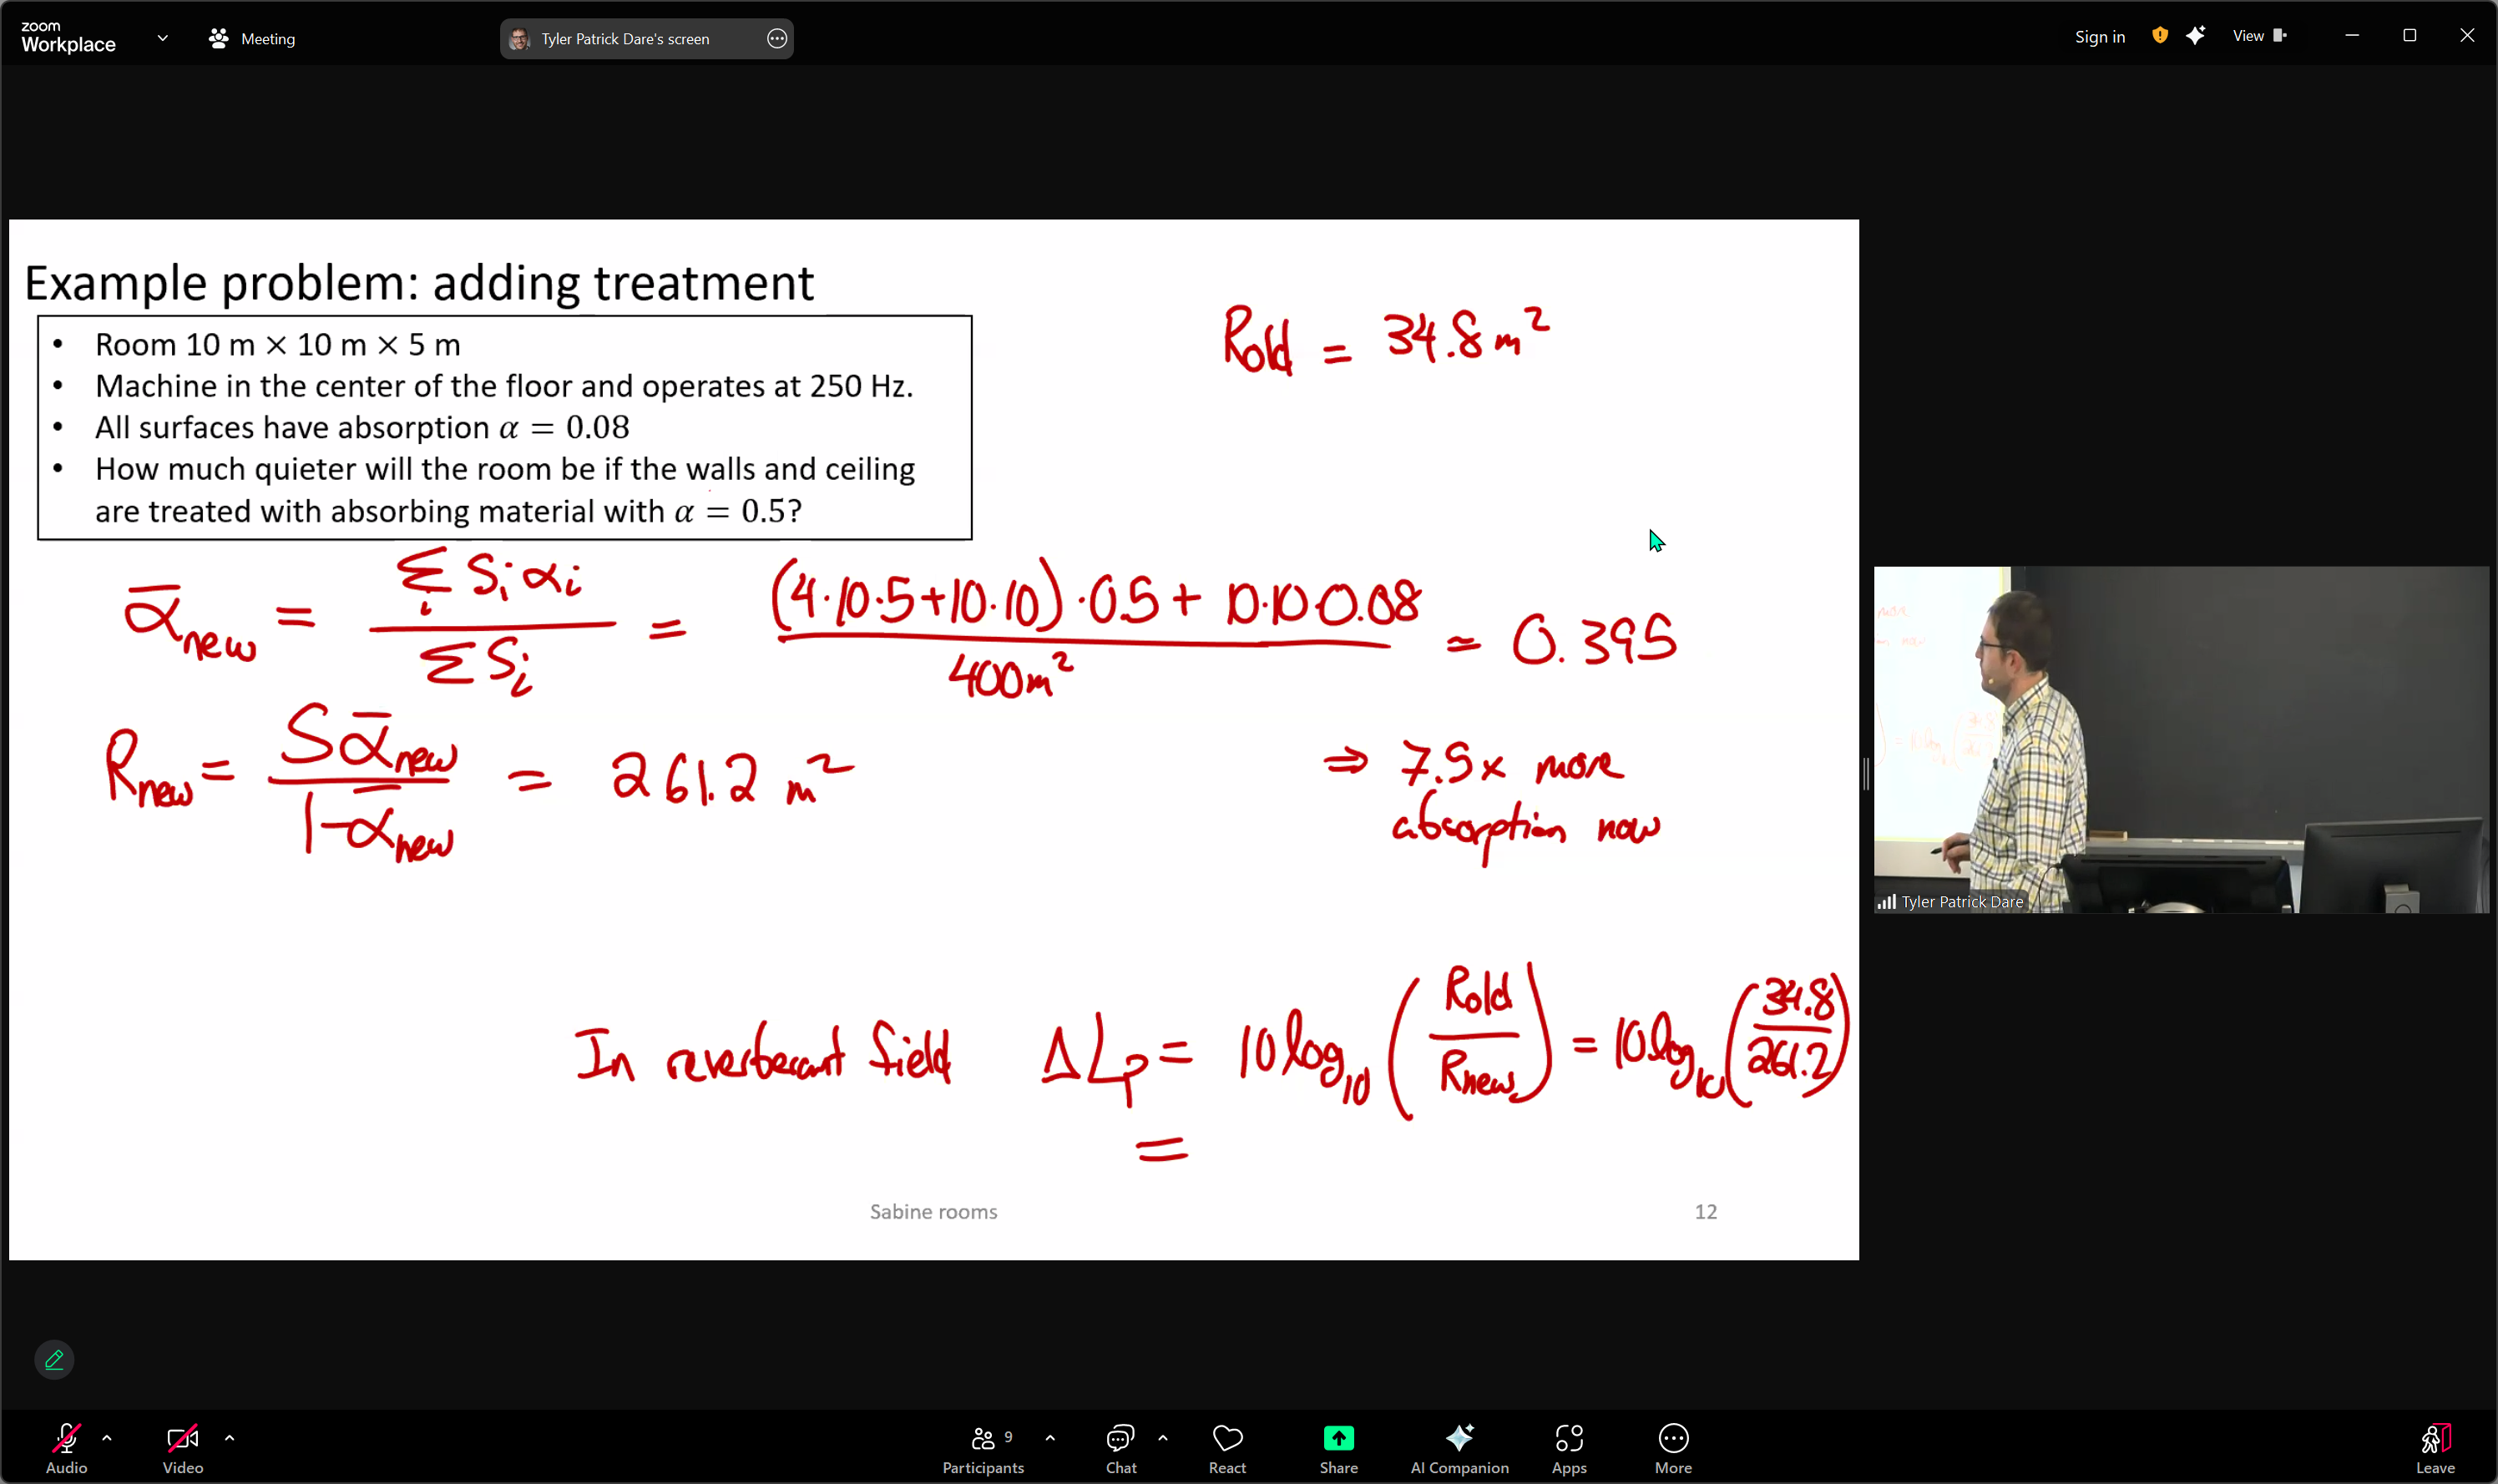 zoom
Workplace
Meeting
Tyler Patrick Dare's screen
Sign in
View
Example problem: adding treatment
• Room 10 m × 10 m × 5 m
• Machine in the center of the floor and operates at 250 Hz.
• All surfaces have absorption α = 0.08
• How much quieter will the room be if the walls and ceiling
are treated with absorbing material with α = 0.5?
Rold = 34.8 m²
ᾱnew = Σi Si αi / Σ Si = (4·10·5+10·10)·0.5 + 10·10·0.08 / 400m² ≈ 0.395
Rnew = Sᾱnew / 1-ᾱnew = 261.2 m²
⇒ 7.5x more
absorption now
In reverberant field ΔLp = 10log10 (Rold / Rnew) = 10log10 (34.8 / 261.2)
=
Sabine rooms
12
Tyler Patrick Dare
Audio
Video
9
Participants
Chat
React
Share
AI Companion
Apps
More
Leave